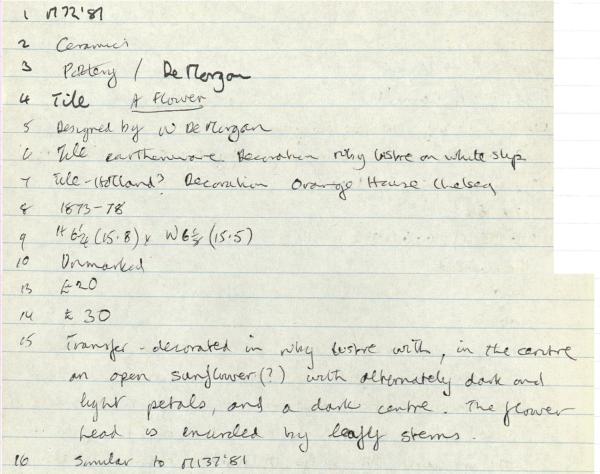 1 M72'81
2 Ceramics
3 Pottery / De Morgan
4 Tile A Flower
5 Designed by W De Morgan
6 Tile earthenware. Decoration ruby lustre on white slip
7 Tile - Holland? Decoration Orange House Chelsea
8 1873-78
9 H 6¼ (15.8) x W 6⅛ (15.5)
10 Unmarked
13 £20
14 £30
15 Transfer-decorated in ruby lustre with, in the centre
an open sunflower(?) with alternately dark and
light petals, and a dark centre. The flower
head is encircled by leafy stems.
16 Similar to M137'81